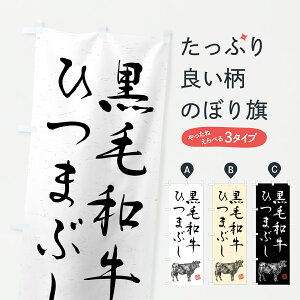 黒毛和牛
ひつまぶし
たっぷり
良い柄
のぼり旗
やったね
えらべる
3タイプ
A
B
C
黒毛和牛
ひつまぶし
黒毛和牛
ひつまぶし
黒毛和牛
ひつまぶし